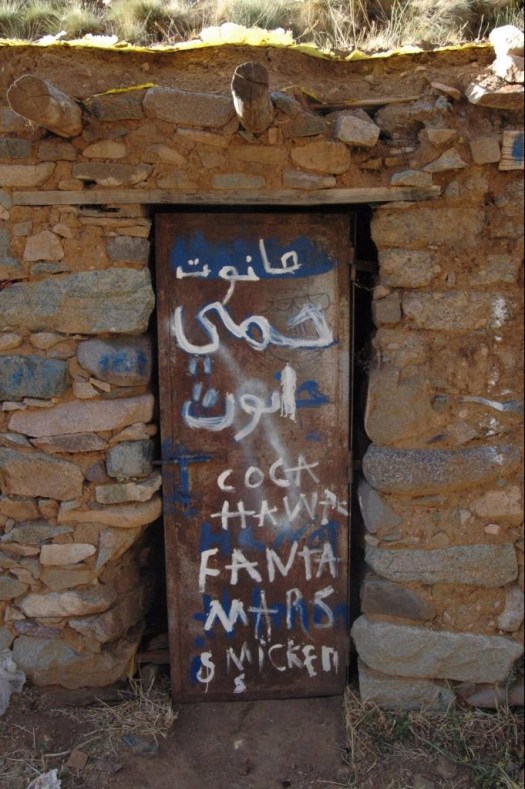 حانوت
حمي
انوت
COCA
HAWA
FANTA
MARS
SMICKEN